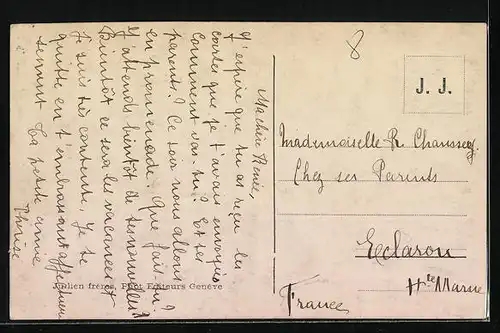 Ma chère Renée,
J'espère que tu as reçu les
cartes que je t'avais envoyées
Comment vas-tu? Et tes
parents? Ce soir nous allons
en promenade. Que fais-tu?
J'attends bientôt de tes nouvelles!
Bientôt ce sera les vacances!
Je suis très contente. Je te
quitte en t'embrassant affectueu
sement Ta petite amie
Thérèse
8
J. J.
Mademoiselle R. Chaussey
Chez ses Parents
Eclaron
Hte Marne
France
Jullien frères, Phot Editeurs Genève